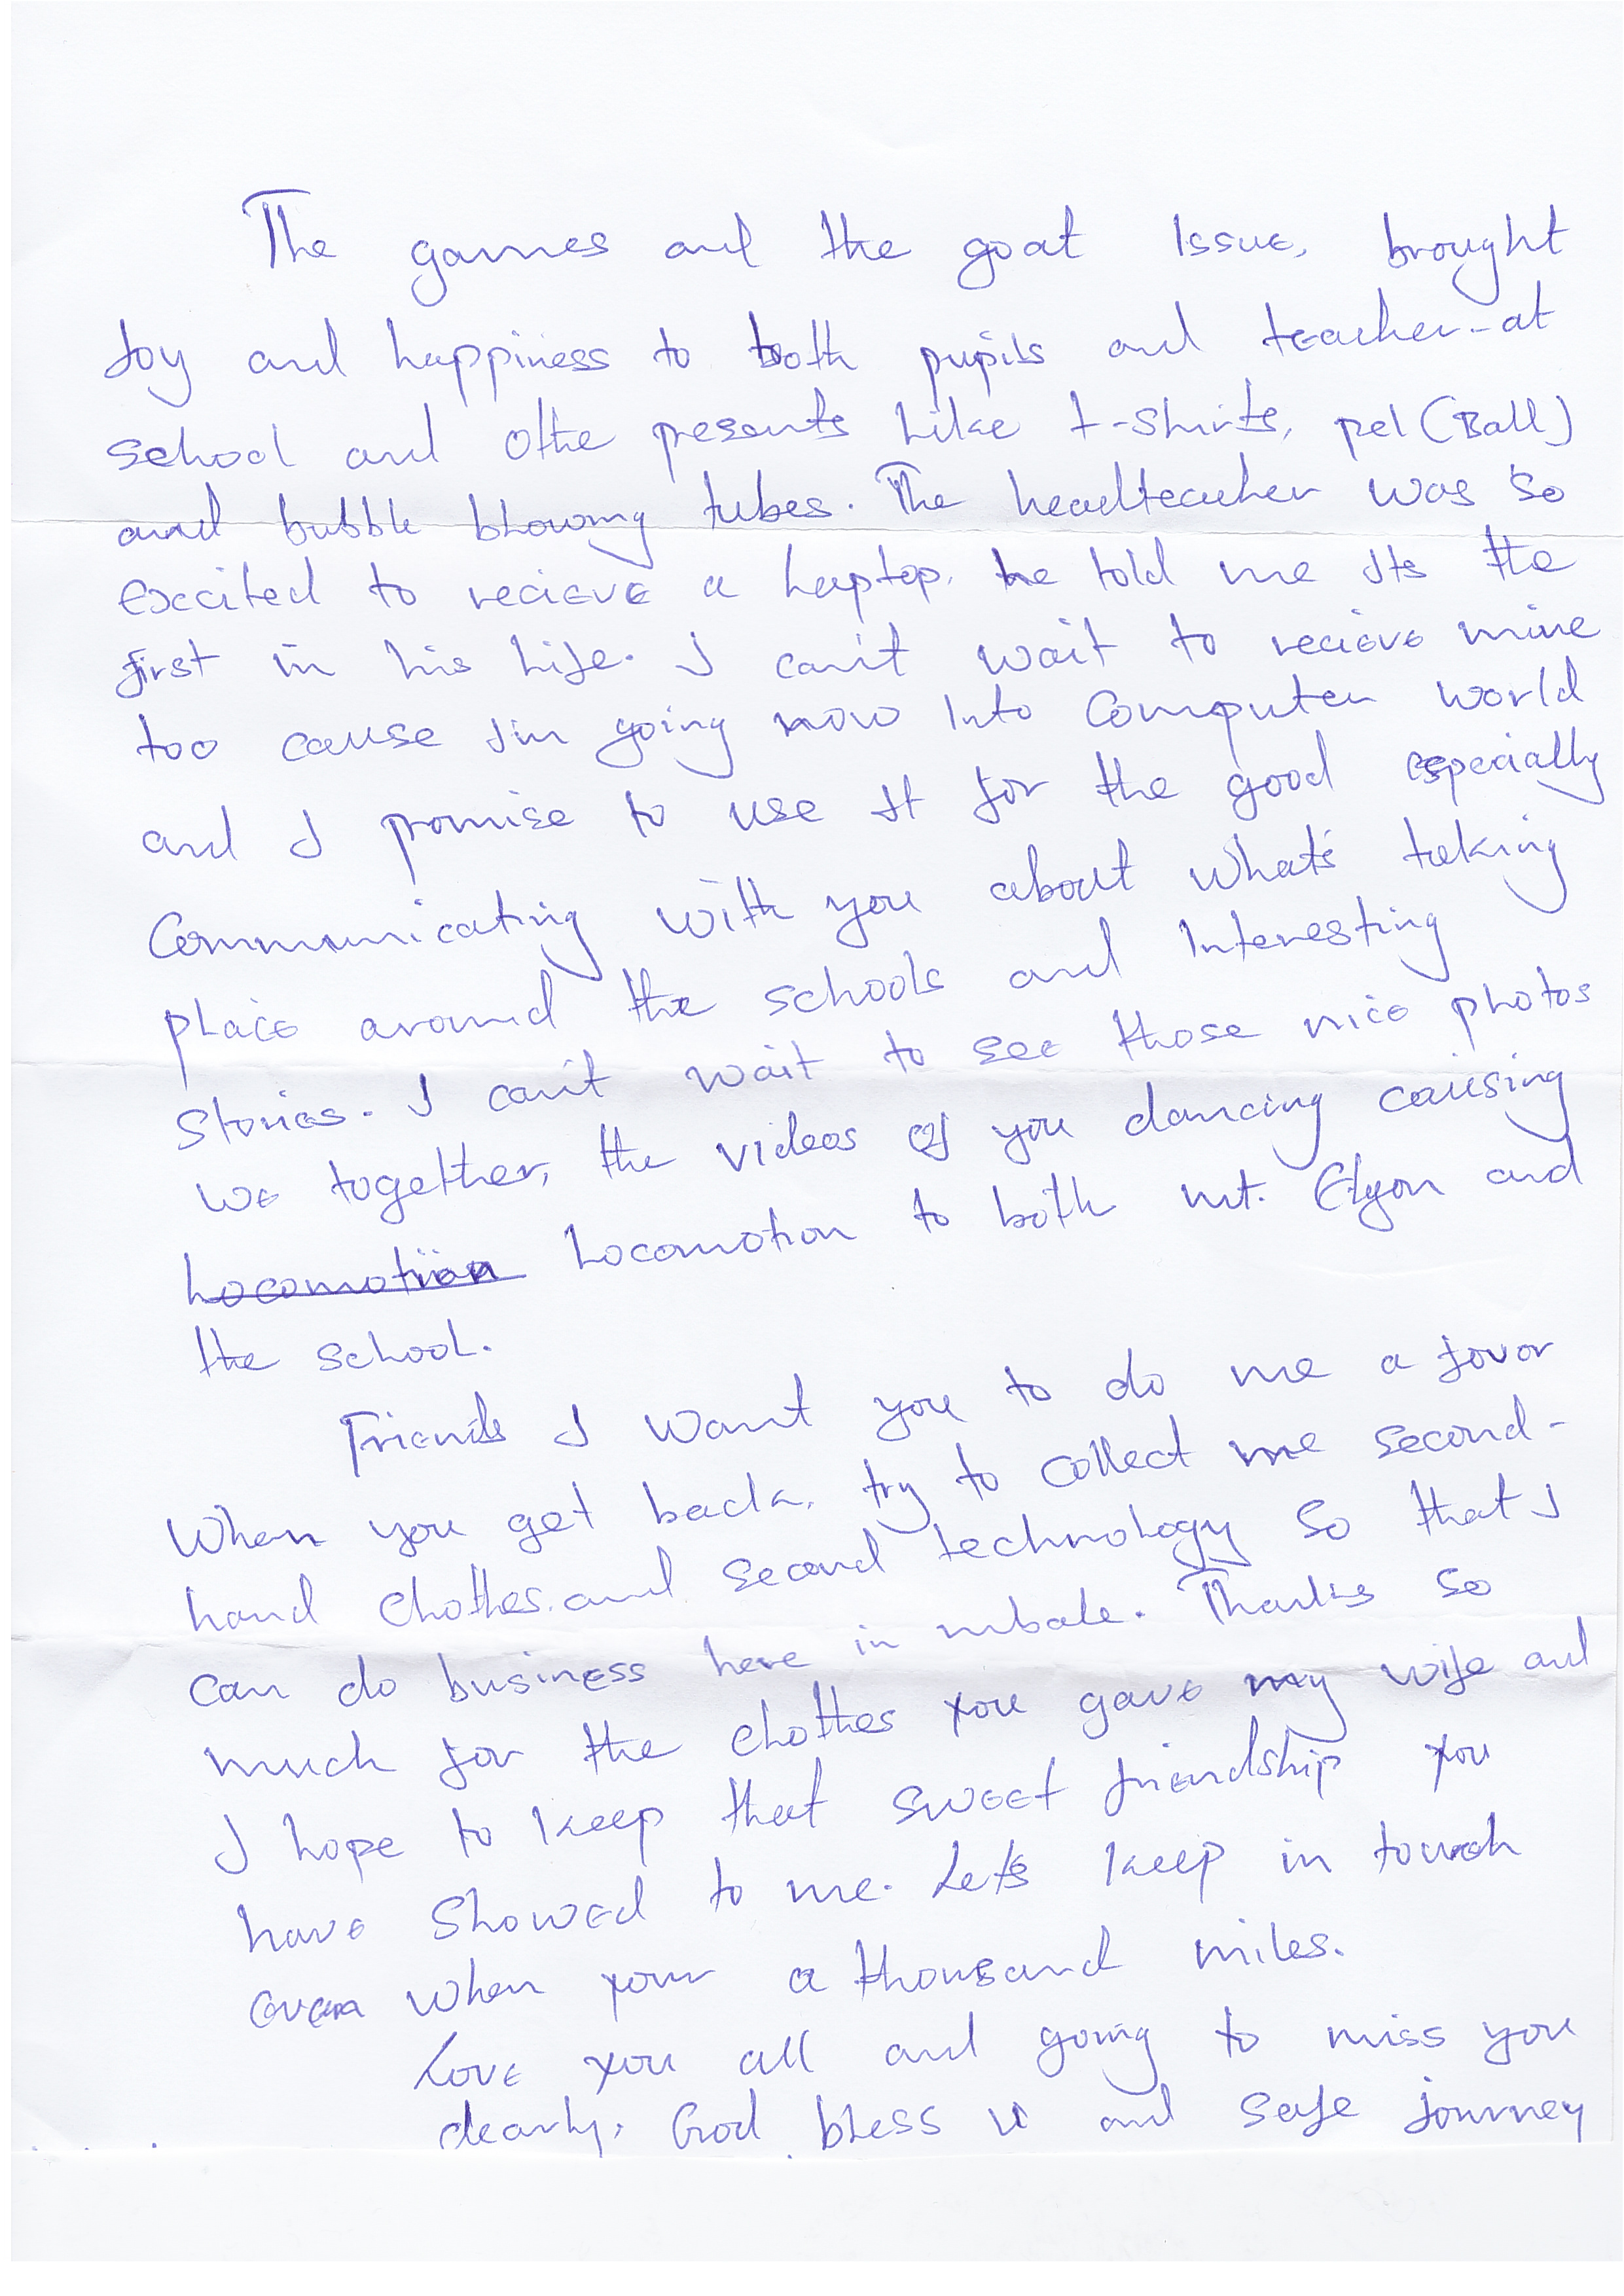 The games and the goat Issue, brought
Joy and happiness to both pupils and teacher-at
school and Othe presents Like t-shirts, pel (Ball)
and bubble blowing tubes. The headteacher was so
excited to recieve a Laptop. he told me Its the
first in his Life. I can't wait to recieve mine
too cause I'm going now Into Computer world
and I promise to use It for the good especially
Communicating with you about what's taking
place around the schools and Interesting
Stories. I can't wait to see those nice photos
we together, the videos of you dancing causing
Locomotion Locomotion to both mt. Elgon and
the school.
Friends I want you to do me a favor
When you get back, try to collect me second-
hand Clothes.and second technology So that I
can do business here in mbale. Thanks so
much for the Clothes you gave my wife and
I hope to keep that sweet friendship you
have Showed to me. Let's keep in touch
even when your a thousand miles.
Love you all and going to miss you
dearly. God bless U and safe journey